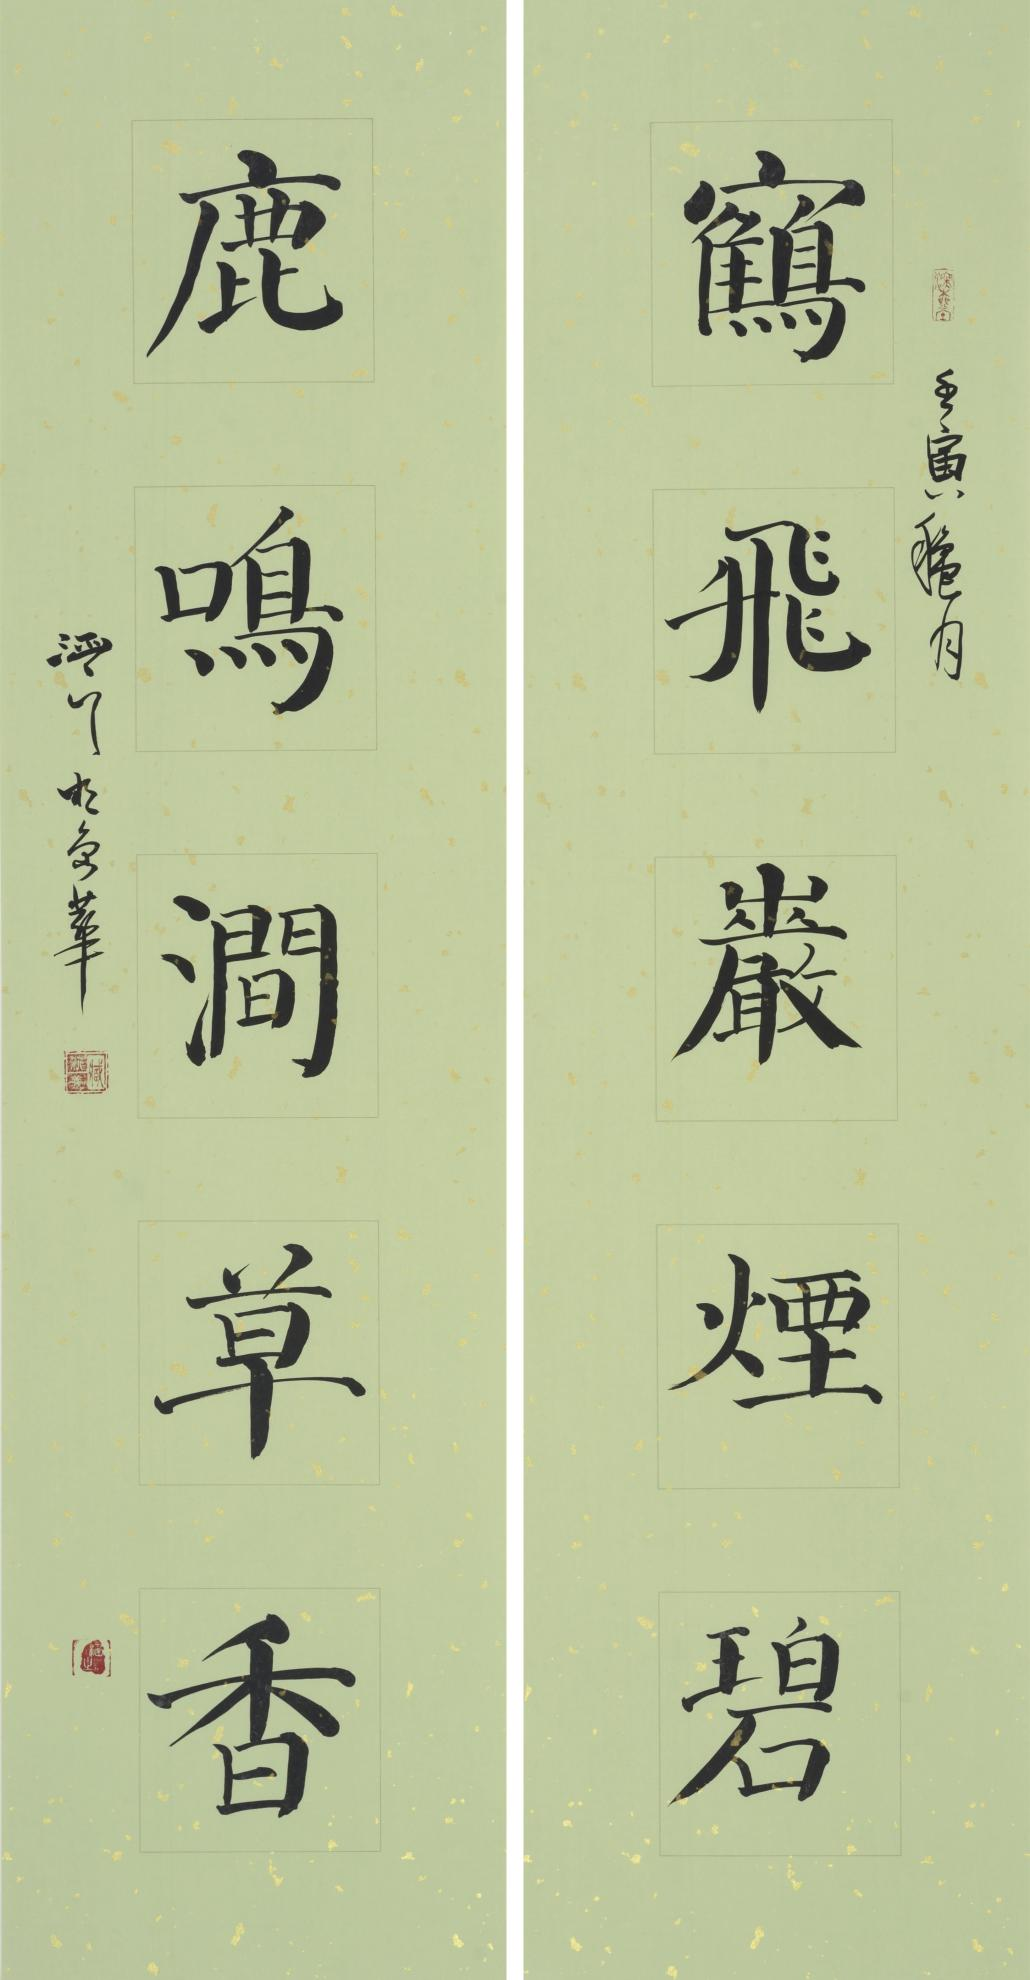 鶴飛巖煙碧
壬寅穐月
鹿鳴澗草香